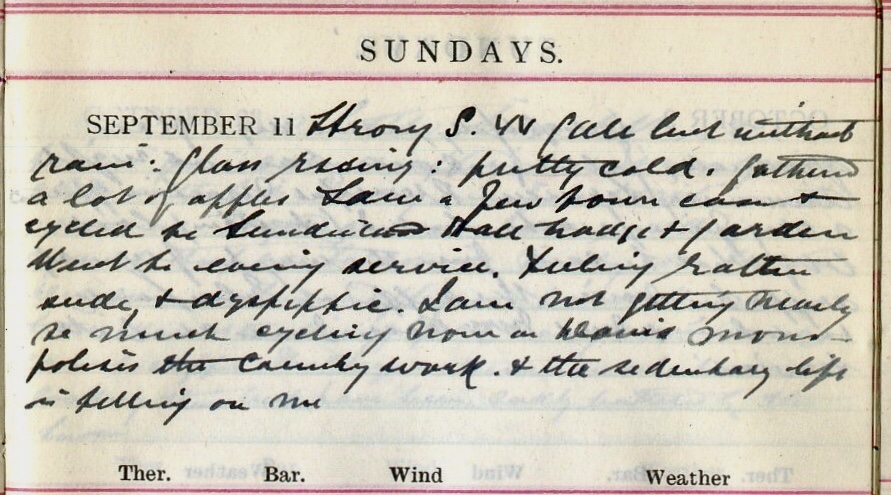 SUNDAYS.
SEPTEMBER 11 Strong S. W Gale but without
rain. Glass rising: pretty cold. Gathered
a lot of apples Saw a few town cases &
cycled to Hall Lodge & Garden
Went to evening service. Feeling rather
seedy & dyspeptic. I am not getting nearly
so much cycling now as Davis mono-
polises the Country work. & the sedentary life
is telling on me
Ther. Bar. Wind Weather